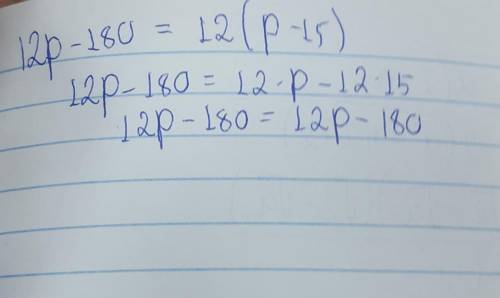 12p - 180 = 12(p - 15)
12p - 180 = 12 · p - 12 · 15
12p - 180 = 12p - 180